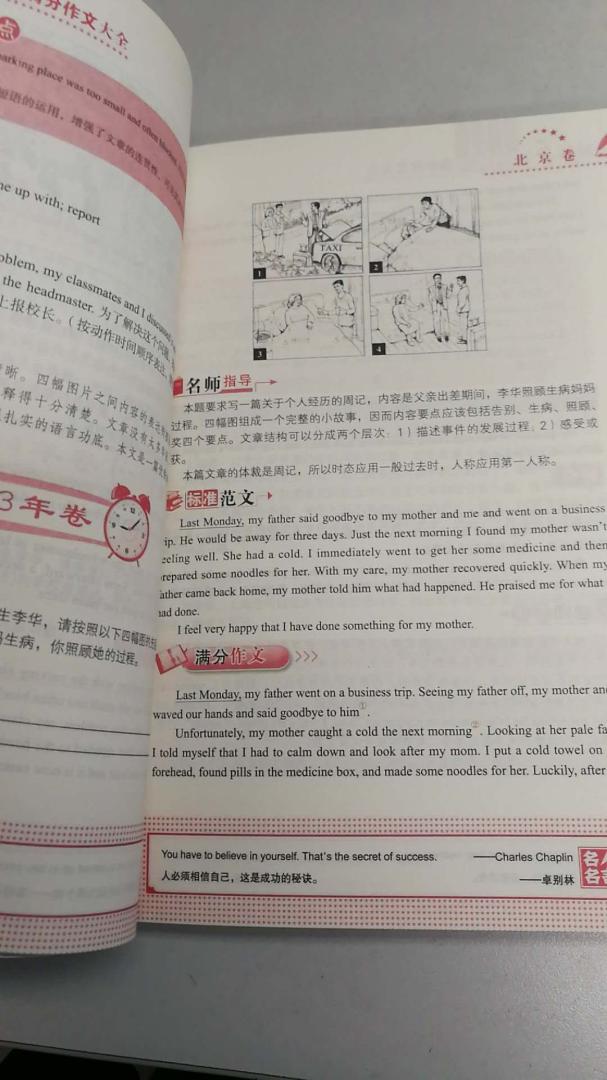 分作文大全
点
parking place was too small and often
短语的运用，增强了文章的连贯性，
me up with; report
oblem, my classmates and I discussed
the headmaster. 为了解决这个问题，
上报校长。（按动作时间顺序表达，
晰。四幅图片之间内容的表达
释得十分清楚。文章没有太多
扎实的语言功底。本文是一篇
3年卷
生李华，请按照以下四幅图的先
妈生病，你照顾她的过程。
北京卷
TAXI
1
2
3
4
名师指导
本题要求写一篇关于个人经历的周记，内容是父亲出差期间，李华照顾生病妈妈
过程。四幅图组成一个完整的小故事，因而内容要点应该包括告别、生病、照顾、
奖四个要点。文章结构可以分成两个层次：1）描述事件的发展过程；2）感受或
获。
本篇文章的体裁是周记，所以时态应用一般过去时，人称应用第一人称。
标准范文
Last Monday, my father said goodbye to my mother and me and went on a business
ip. He would be away for three days. Just the next morning I found my mother wasn't
eeling well. She had a cold. I immediately went to get her some medicine and then
repared some noodles for her. With my care, my mother recovered quickly. When my
ather came back home, my mother told him what had happened. He praised me for what
had done.
I feel very happy that I have done something for my mother.
满分作文
Last Monday, my father went on a business trip. Seeing my father off, my mother and
waved our hands and said goodbye to him①.
Unfortunately, my mother caught a cold the next morning②. Looking at her pale fa
I told myself that I had to calm down and look after my mom. I put a cold towel on
forehead, found pills in the medicine box, and made some noodles for her. Luckily, after
You have to believe in yourself. That's the secret of success. ——Charles Chaplin
人必须相信自己，这是成功的秘诀。 ——卓别林
名人
名言